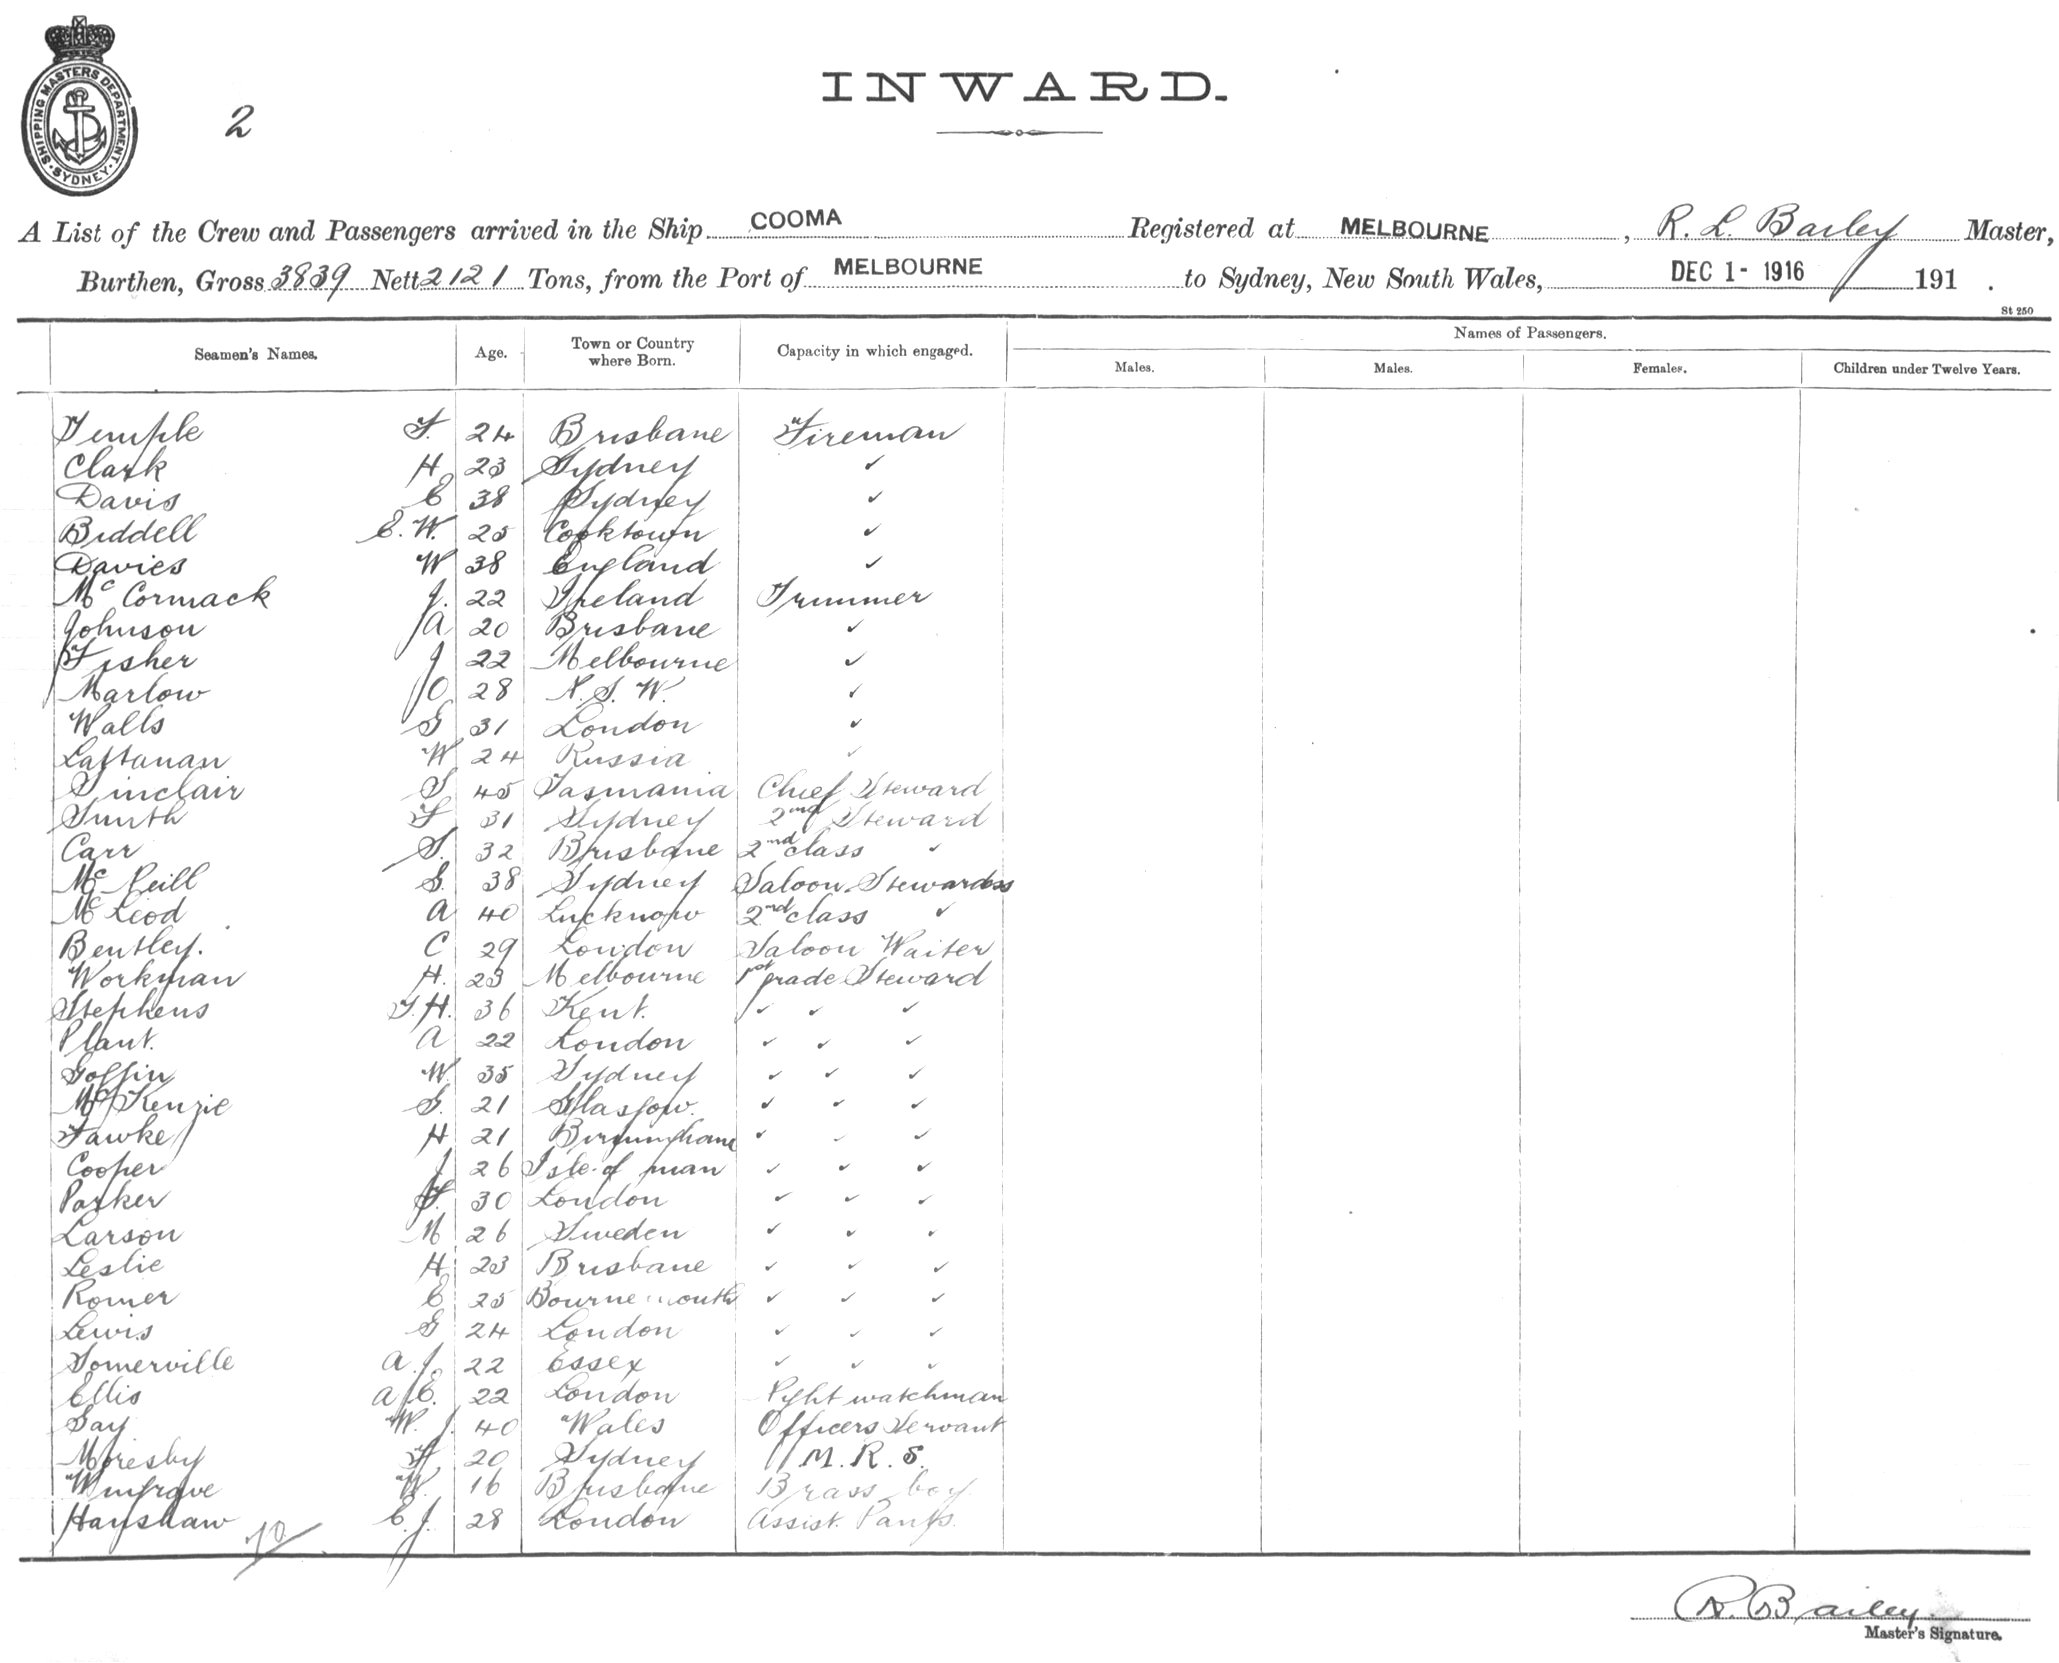 SHIPPING MASTERS DEPARTMENT
SYDNEY
2
INWARD.
A List of the Crew and Passengers arrived in the Ship COOMA Registered at MELBOURNE, R. L. Bailey Master,
Burthen, Gross 3839 Nett 2121 Tons, from the Port of MELBOURNE to Sydney, New South Wales, DEC 1 - 1916 191 .
St 250
Seamen's Names. Age. Town or Country where Born. Capacity in which engaged. Names of Passengers.
Males. Males. Females. Children under Twelve Years.
Temple 24 Brisbane Fireman
Clark H 23 Sydney ✓
Davis E 38 Sydney ✓
Biddell E. W. 25 Cooktown ✓
Davies W 38 England ✓
Mc Cormack J. 22 Ireland Trimmer
Johnson A 20 Brisbane ✓
Fisher J 22 Melbourne ✓
Marlow O 28 N. S. W. ✓
Walls G 31 London ✓
W 24 Russia ✓
Sinclair 45 Tasmania Chief Steward
Smith F 31 Sydney 2nd Steward
Carr S. 32 Brisbane 2nd class ✓
Mc Neill S. 38 Sydney Saloon Stewardess
Mc Leod A 40 Lucknow 2nd class ✓
Bentley. C 29 London Saloon Waiter
Workman H. 23 Melbourne 1st grade Steward
Stephens T. H. 36 Kent. ✓ ✓ ✓
Plant. A 22 London ✓ ✓ ✓
Goffin W. 35 Sydney ✓ ✓ ✓
Mc Kenzie G. 21 Glasgow. ✓ ✓ ✓
Fawke H 21 Birmingham ✓ ✓ ✓
Cooper J 26 Isle of man ✓ ✓ ✓
Parker F. 30 London ✓ ✓ ✓
Larson M 26 Sweden ✓ ✓ ✓
Leslie H 23 Brisbane ✓ ✓ ✓
Romer E 25 Bournemouth ✓ ✓ ✓
Lewis G 24 London ✓ ✓ ✓
Somerville A. J. 22 Essex ✓ ✓ ✓
Ellis A. E. 22 London Night watchman
Gay W. J. 40 Wales Officers Servant
Moresby 20 Sydney M. R. S.
Wingrave W. 16 Brisbane Brass boy
Hanshaw E. J. 28 London Assist. Pantry
70
R. Bailey.
Master's Signature.